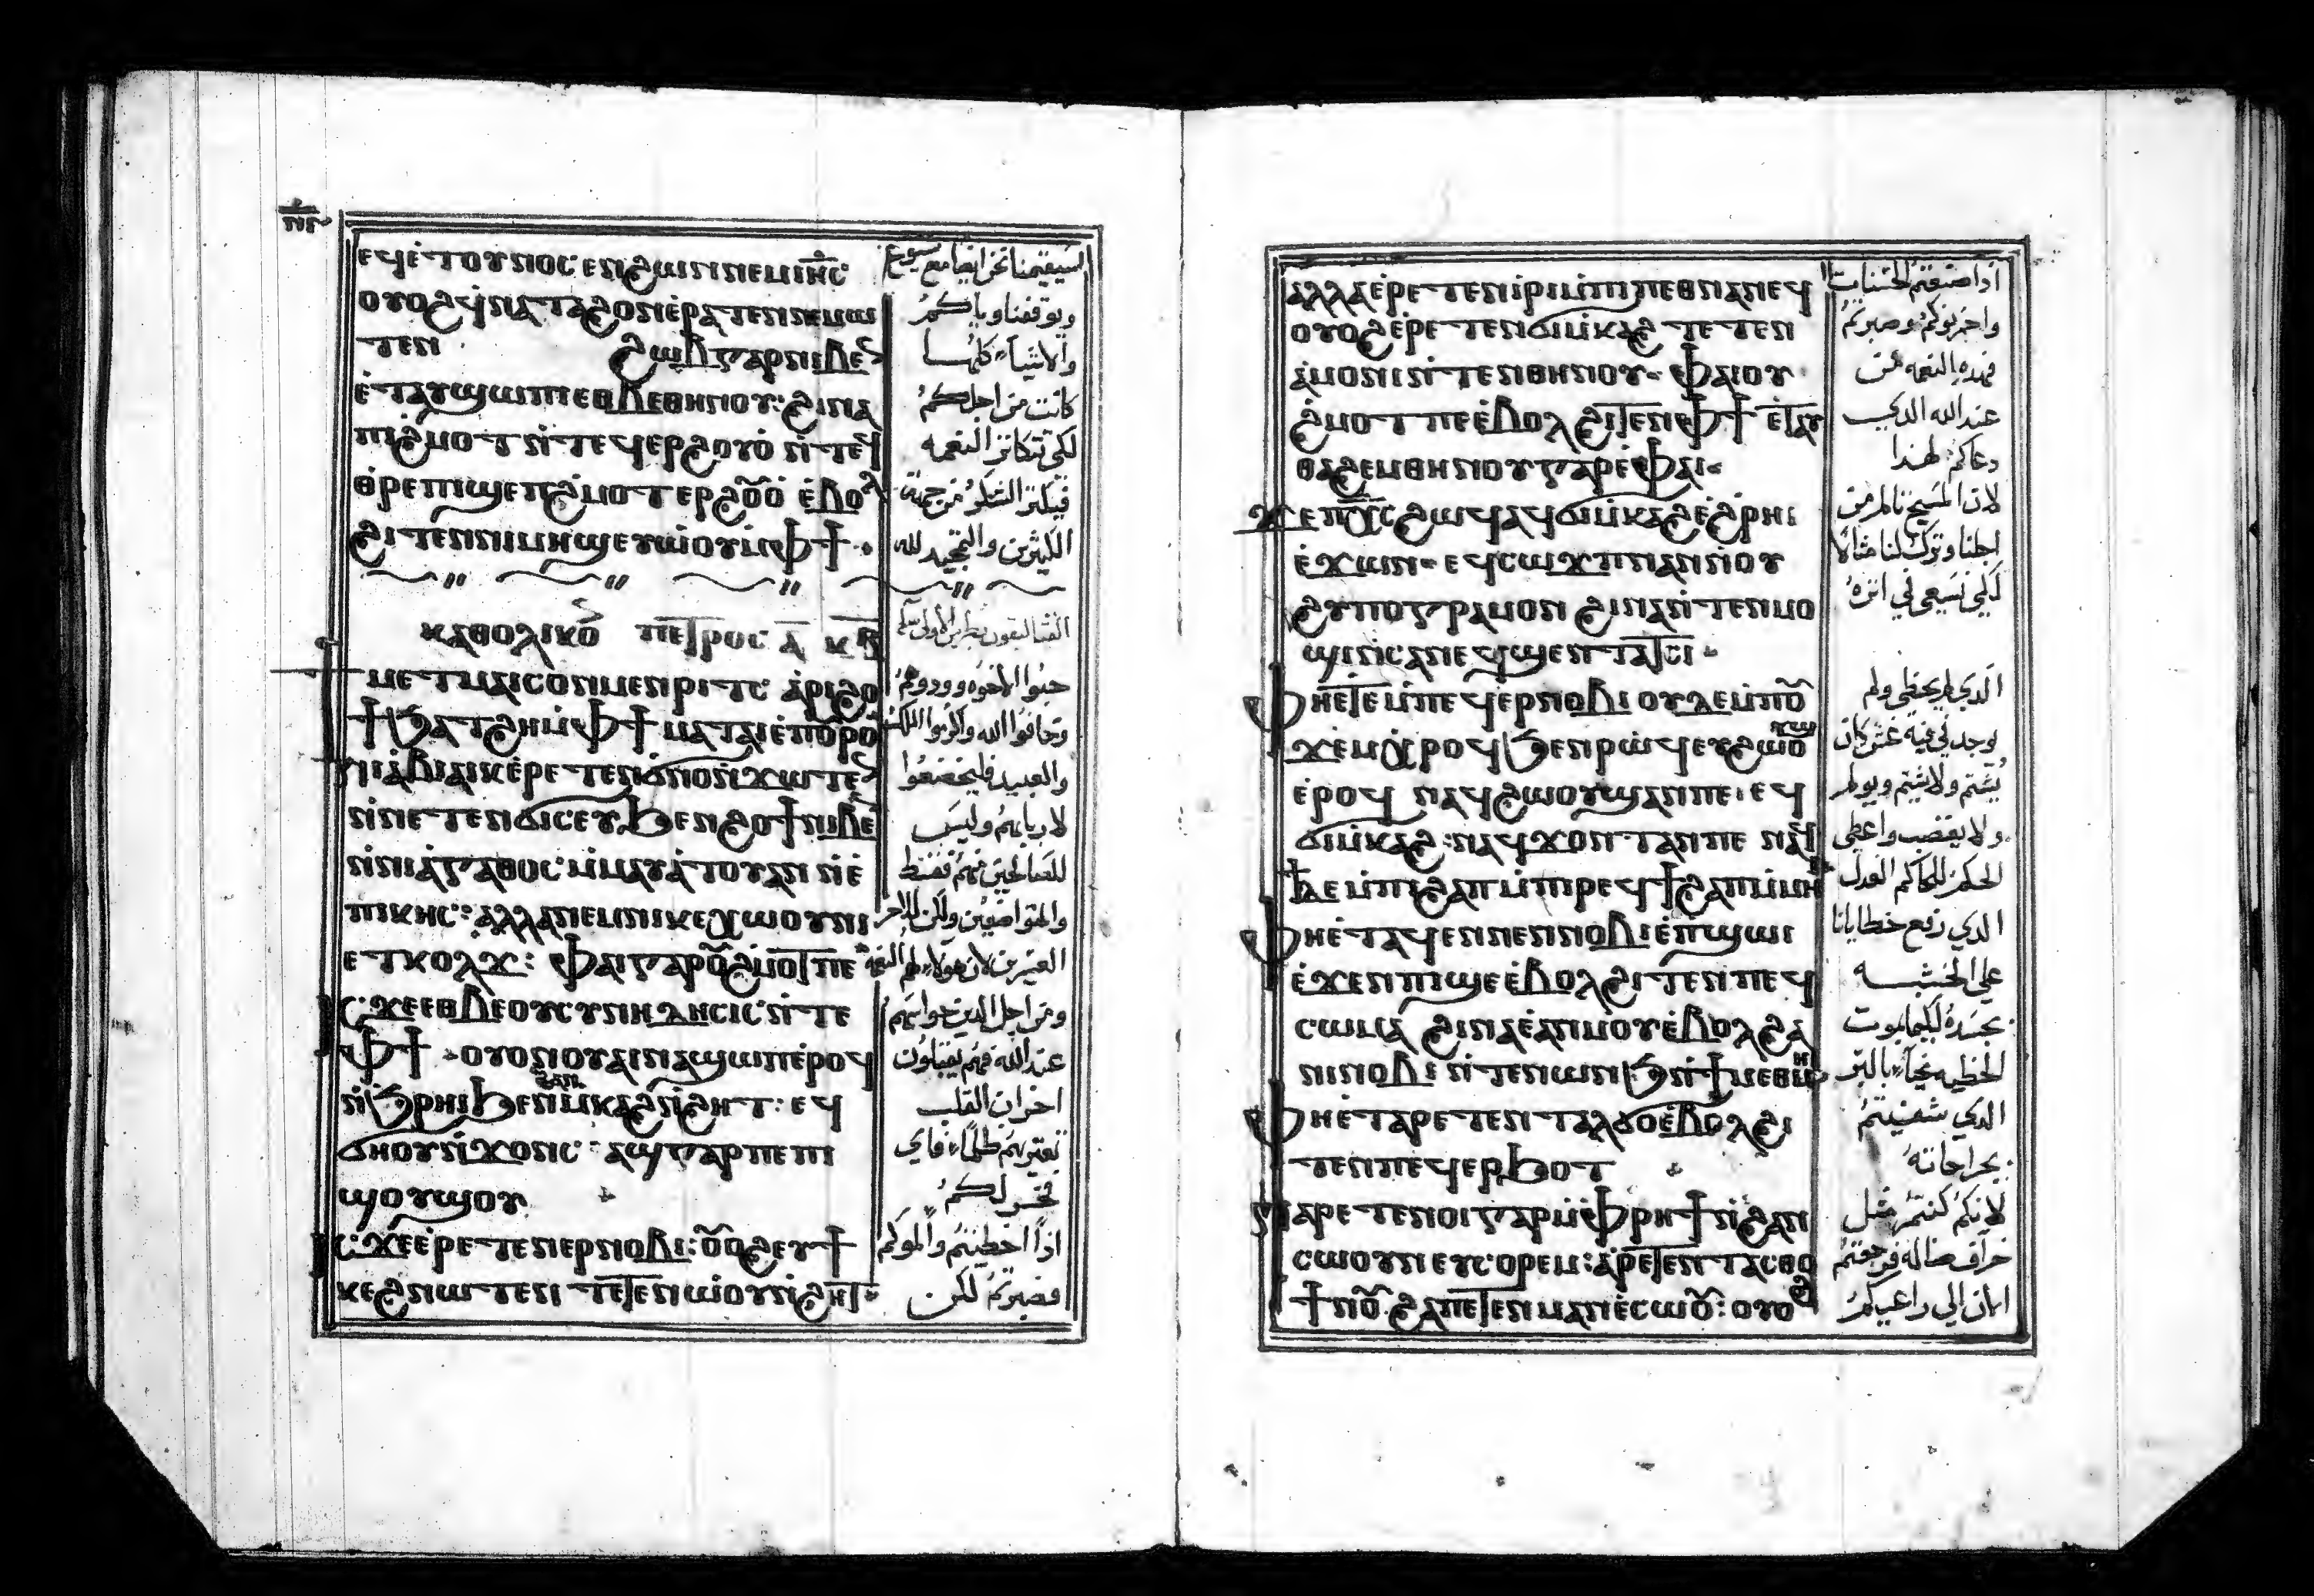 ⲉϥⲉ̀ⲧⲟⲩⲛⲟⲥ ⲉⲛϩⲱⲓⲛⲓ ⲛⲉⲙ ⲓⲏ̅ⲥ̅
ⲟⲩⲟϩ ϥ̀ⲛⲁⲧⲁϩⲟⲛ ⲉ̀ⲣⲁⲧⲉⲛ ⲛⲉⲙⲱ
ⲧⲉⲛ ϩⲱⲃ ⲅⲁⲣ ⲛⲓⲃⲉⲛ
ⲉ̀ⲧⲁⲩϣⲱⲡⲓ ⲉⲑⲃⲉⲑⲏⲛⲟⲩ: ϩⲓⲛⲁ
ⲡⲓϩⲙⲟⲧ ⲛ̀ⲧⲉϥⲉⲣϩⲟⲩⲟ̀ ⲛ̀ⲧⲉϥ
ⲑⲣⲉ ⲡⲓϣⲉⲡϩ̀ⲙⲟⲧ ⲉⲣϩⲟⲩⲟ̀ ⲉ̀ⲃⲟⲗ
ϩⲓⲧⲉⲛ ⲛⲓⲙⲏϣ ⲉⲩⲱ̀ⲟⲩ ⲙ̀ⲫϯ
ⲕⲁⲑⲟⲗⲓⲕⲟ̅ ⲡⲉⲧⲣⲟⲥ ⲁ̅ ⲕⲃ̅
ⲙⲉⲧⲙⲁⲓⲥⲟⲛ ⲙⲉⲛⲣⲓⲧⲥ ⲁ̀ⲣⲓϩⲟ
ϯ ϧⲁⲧϩⲏ ⲙ̀ⲫϯ ⲙⲁⲧⲁⲓⲉ̀ ⲡⲟⲩⲣⲟ
ⲛⲓⲁ̀ⲃⲓⲁⲓⲕ ⲉ̀ⲣⲉⲧⲉⲛϭ̀ⲛⲟⲛ ⲛ̀ϫⲱⲧⲉⲛ
ⲛ̀ⲛⲉⲧⲉⲛϭⲓⲥⲉⲩ ϧⲉⲛ ϩⲟϯ ⲛⲓⲃⲉⲛ
ⲛ̀ⲛⲓⲁ̀ⲅⲁⲑⲟⲥ ⲙ̀ⲙⲁⲩⲁ̀ⲧⲟⲩ ⲁⲛ ⲛ̀ⲉ̀
ⲡⲓⲕⲏⲥ: ⲁⲗⲗⲁ ⲛⲉⲙ ⲛⲓⲕⲉⲭⲱⲟⲩⲛⲓ
ⲉⲧⲕⲟⲗϫ: ⲫⲁⲓ ⲅⲁⲣ ⲟⲩϩⲙⲟⲧ ⲡⲉ
ϫⲉ ⲉⲑⲃⲉ ⲟⲩⲥⲩⲛⲏⲇⲏⲥⲓⲥ ⲛ̀ⲧⲉ
ⲫϯ ⲟⲩⲟⲛ ⲟⲩⲁⲓ ⲛⲁϣⲱⲡ ⲉ̀ⲣⲟϥ
ⲛ̀ϧⲣⲏⲓ ϧⲉⲛ ϩⲁⲛⲙ̀ⲕⲁϩ ⲛ̀ϩⲏⲧ: ⲉϥ
ϭⲏⲟⲩ ⲛ̀ϫⲟⲛⲥ: ⲁϣ ⲅⲁⲣ ⲡⲉ ⲡⲓ
ϣⲟⲩϣⲟⲩ
ϫⲉ ⲉ̀ⲣⲉⲧⲉⲛⲉⲣⲛⲟⲃⲓ: ⲟⲩⲟϩ ⲉⲩϯ
ⲕⲉϩ ⲛⲱⲧⲉⲛ ⲧⲉⲧⲉⲛⲱ̀ⲟⲩ ⲛ̀ϩⲏⲧ
سيقيمنا نحن ايضا مع يسوع
ويوقفنا واياكم
والاشياء كلها
كانت من اجلكم
لكي تتكاثر النعمه
فيكثر الشكر من جهة
الكثيرين والتمجيد لله
حبوا الاخوه وودوهم
وخافوا الله واكرموا الملك
والعبيد فليخضعوا
لاربابهم وليس
للصالحين منهم فقط
والمتواضعين ولكن للاخر
العسرين لان هولاء لهم النعمه
ومن اجل الدين جوابهم
عند الله فهم يقبلون
احزان القلب
تعتريهم ظلما فاي
فخر لكم
اذا اخطيتم والموكم
فصبرتم لكن
ⲁⲗⲗⲁ ⲉ̀ⲣⲉⲧⲉⲛⲓ̀ⲣⲓ ⲙ̀ⲡⲓⲡⲉⲑⲛⲁⲛⲉϥ
ⲟⲩⲟϩ ⲉ̀ⲣⲉⲧⲉⲛϭⲓⲙ̀ⲕⲁϩ ⲧⲉⲧⲉⲛ
ⲁ̀ⲙⲟⲛⲓ ⲛ̀ⲧⲉⲛⲑⲏⲛⲟⲩ ⲫⲁⲓ ⲟⲩ
ϩ̀ⲙⲟⲧ ⲡⲉ ⲉ̀ⲃⲟⲗ ϩⲓⲧⲉⲛ ⲫϯ ⲉ̀ⲧⲁⲩ
ⲑⲁϩⲉⲙⲑⲏⲛⲟⲩ ⲅⲁⲣ ⲉ̀ⲫⲁⲓ
ϫⲉ ⲡⲭ̅ⲥ̅ ϩⲱϥ ⲁϥϭⲓⲙ̀ⲕⲁϩ ⲉ̀ϩ̀ⲣⲏⲓ
ⲉ̀ϫⲱⲛ ⲉϥⲥⲱϫⲡ ⲛⲁⲛ ⲛ̀ⲟⲩ
ϩⲩⲡⲟⲅⲣⲁⲙⲟⲛ ϩⲓⲛⲁ ⲛ̀ⲧⲉⲛⲙⲟ
ϣⲓ ⲛ̀ⲥⲁ ⲛⲉϥϣⲉⲛⲧⲁⲧⲥⲓ
ⲫⲏⲉⲧⲉ ⲙ̀ⲡⲉϥⲉⲣⲛⲟⲃⲓ ⲟⲩⲇⲉ ⲙ̀ⲡⲟⲩ
ϫⲉⲙ ⲭ̀ⲣⲟϥ ϧⲉⲛ ⲣⲱϥ ⲉⲩϩⲱⲟⲩϣ
ⲉ̀ⲣⲟϥ ⲛⲁϥϩⲱⲟⲩϣ ⲁⲛ ⲡⲉ: ⲉϥ
ϭⲓⲙ̀ⲕⲁϩ: ⲛⲁϥϫⲟⲛⲧ ⲁⲛ ⲡⲉ ⲛⲁϥϯ
ⲇⲉ ⲙ̀ⲡⲓϩⲁⲡ ⲙ̀ⲡⲓⲣⲉϥϯϩⲁⲡ ⲙ̀ⲙⲏⲓ
ⲫⲏⲉ̀ⲧⲁϥⲉⲛ ⲛⲉⲛⲛⲟⲃⲓ ⲉ̀ⲡ̀ϣⲱⲓ
ⲉ̀ϫⲉⲛ ⲡⲓϣⲉ ⲉ̀ⲃⲟⲗ ϩⲓⲧⲉⲛ ⲡⲉϥ
ⲥⲱⲙⲁ ϩⲓⲛⲁ ⲉ̀ⲁⲛⲙⲟⲩ ⲉ̀ⲃⲟⲗ ϩⲁ
ⲛⲓⲛⲟⲃⲓ ⲛ̀ⲧⲉⲛⲱⲛϧ ⲛ̀ϯⲙⲉⲑⲙⲏⲓ
ⲫⲏⲉ̀ⲧⲁⲣⲉⲧⲉⲛⲧⲁⲗϭⲟ ⲉ̀ⲃⲟⲗ ϩⲓ
ⲧⲉⲛ ⲡⲉϥⲉⲣϧⲟⲧ
ⲛⲁⲣⲉⲧⲉⲛⲟⲓ ⲅⲁⲣ ⲙ̀ⲫⲣⲏϯ ⲛ̀ϩⲁⲛ
ⲉ̀ⲥⲱⲟⲩ ⲉⲩⲥⲟⲣⲉⲙ: ⲁ̀ⲣⲉⲧⲉⲛⲧⲁⲥⲑⲟ
ϯⲛⲟⲩ ϩⲁ ⲡⲉⲧⲉⲛⲙⲁⲛⲉ̀ⲥⲱⲟⲩ: ⲟⲩⲟϩ
اذا صنعتم الحسنات
واحزنوكم وصبرتم
فهذه النعمه من
عند الله الدي
دعاكم لهدا
لان المسيح تالم من
اجلنا وترك لنا مثالا
لكي نسعى في اثره
الدي لم يخطي ولم
يوجد في فيه غش كان
يشتم ولا يشتم ويولم
ولا يغضب واعطى
الحكم للحاكم العدل
الدي رفع خطايانا
على الخشبه
بجسده لكيما نموت
الخطيه نحيا بالبر
الدي شفيتم
بجراحاته
لانكم كنتم مثل
خراف ضاله فرجعتم
الان الى راعيكم